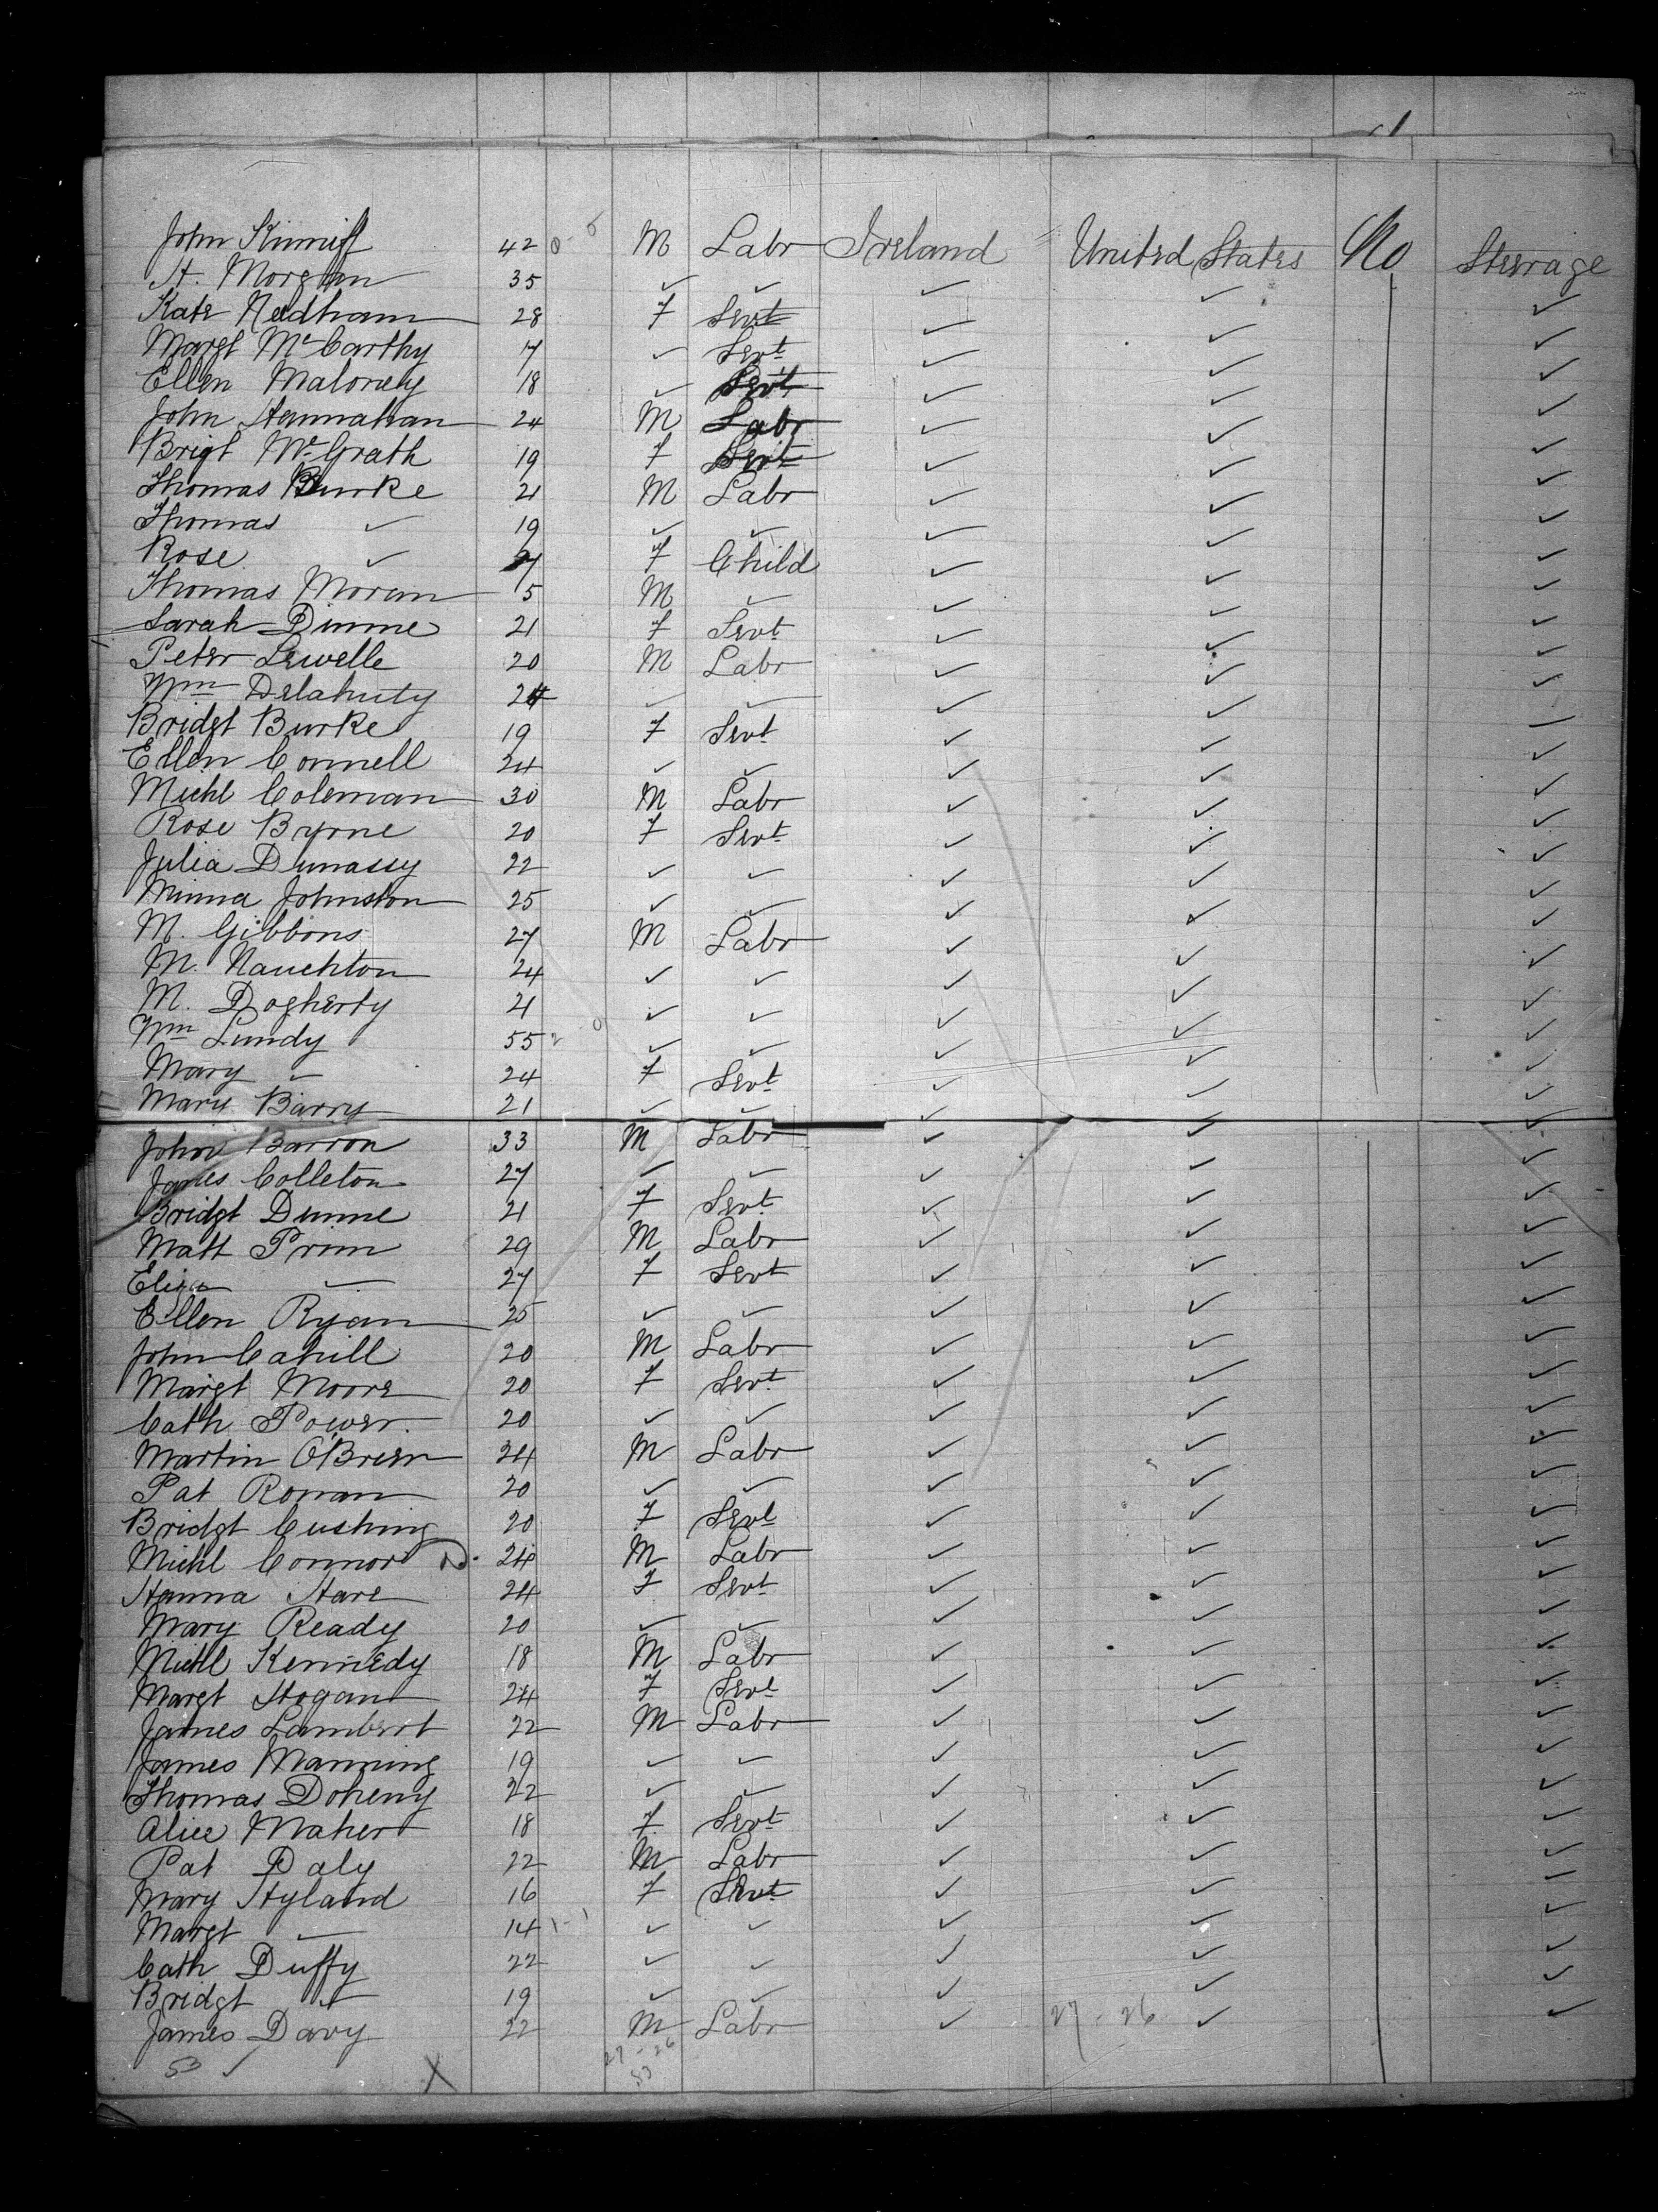 John Kinniff 42 M Labr Ireland United States No Steerage
H. Morgan 35 ✓ ✓ ✓ ✓
Kate Needham 28 F Servt ✓ ✓ ✓
Margt McCarthy 17 ✓ Servt ✓ ✓ ✓
Ellen Maloney 18 ✓ Servt ✓ ✓ ✓
John Hannahan 24 M Labr ✓ ✓ ✓
Brigt McGrath 19 F Servt ✓ ✓ ✓
Thomas Burke 21 M Labr ✓ ✓ ✓
Thomas ✓ 19 ✓ ✓ ✓ ✓ ✓
Rose ✓ 7 F Child ✓ ✓ ✓
Thomas Moran 5 M ✓ ✓ ✓ ✓
Sarah Dunne 21 F Servt ✓ ✓ ✓
Peter Lewelle 20 M Labr ✓ ✓ ✓
Wm Delahuty 24 ✓ ✓ ✓ ✓ ✓
Bridgt Burke 19 F Servt ✓ ✓ ✓
Ellen Connell 24 ✓ ✓ ✓ ✓ ✓
Michl Coleman 30 M Labr ✓ ✓ ✓
Rose Byrne 20 F Servt ✓ ✓ ✓
Julia Dunassy 22 ✓ ✓ ✓ ✓ ✓
Minna Johnston 25 ✓ ✓ ✓ ✓ ✓
M. Gibbons 27 M Labr ✓ ✓ ✓
M. Naughton 24 ✓ ✓ ✓ ✓ ✓
M. Dogherty 21 ✓ ✓ ✓ ✓ ✓
Wm Lundy 55 ✓ ✓ ✓ ✓ ✓
Mary ✓ 24 F Servt ✓ ✓ ✓
Mary Barry 21 ✓ ✓ ✓ ✓ ✓
John Barron 33 M Labr ✓ ✓ ✓
James Colleton 27 ✓ ✓ ✓ ✓ ✓
Bridgt Dunne 21 F Servt ✓ ✓ ✓
Matt Prim 29 M Labr ✓ ✓ ✓
Eliza ✓ 27 F Servt ✓ ✓ ✓
Ellen Ryan 25 ✓ ✓ ✓ ✓ ✓
John Cahill 20 M Labr ✓ ✓ ✓
Margt Moore 20 F Servt ✓ ✓ ✓
Cath Power. 20 ✓ ✓ ✓ ✓ ✓
Martin O'Brien 24 M Labr ✓ ✓ ✓
Pat Ronan 20 ✓ ✓ ✓ ✓ ✓
Bridgt Cushing 20 F Servt ✓ ✓ ✓
Michl Connor 24 M Labr ✓ ✓ ✓
Hanna Hare 24 F Servt ✓ ✓ ✓
Mary Ready 20 ✓ ✓ ✓ ✓ ✓
Michl Kennedy 18 M Labr ✓ ✓ ✓
Margt Hogan 24 F Servt ✓ ✓ ✓
James Lambert 22 M Labr ✓ ✓ ✓
James Manning 19 ✓ ✓ ✓ ✓ ✓
Thomas Doheny 22 ✓ ✓ ✓ ✓ ✓
Alice Maher 18 F Servt ✓ ✓ ✓
Pat Daly 22 M Labr ✓ ✓ ✓
Mary Hyland 16 F Servt ✓ ✓ ✓
Margt ✓ 14 1-1 ✓ ✓ ✓ ✓ ✓
Cath Duffy 22 ✓ ✓ ✓ ✓ ✓
Bridgt ✓ 19 ✓ ✓ ✓ ✓ ✓
James Davy 22 M Labr ✓ 27-26 ✓ ✓
53 ✓ X 27-26
53